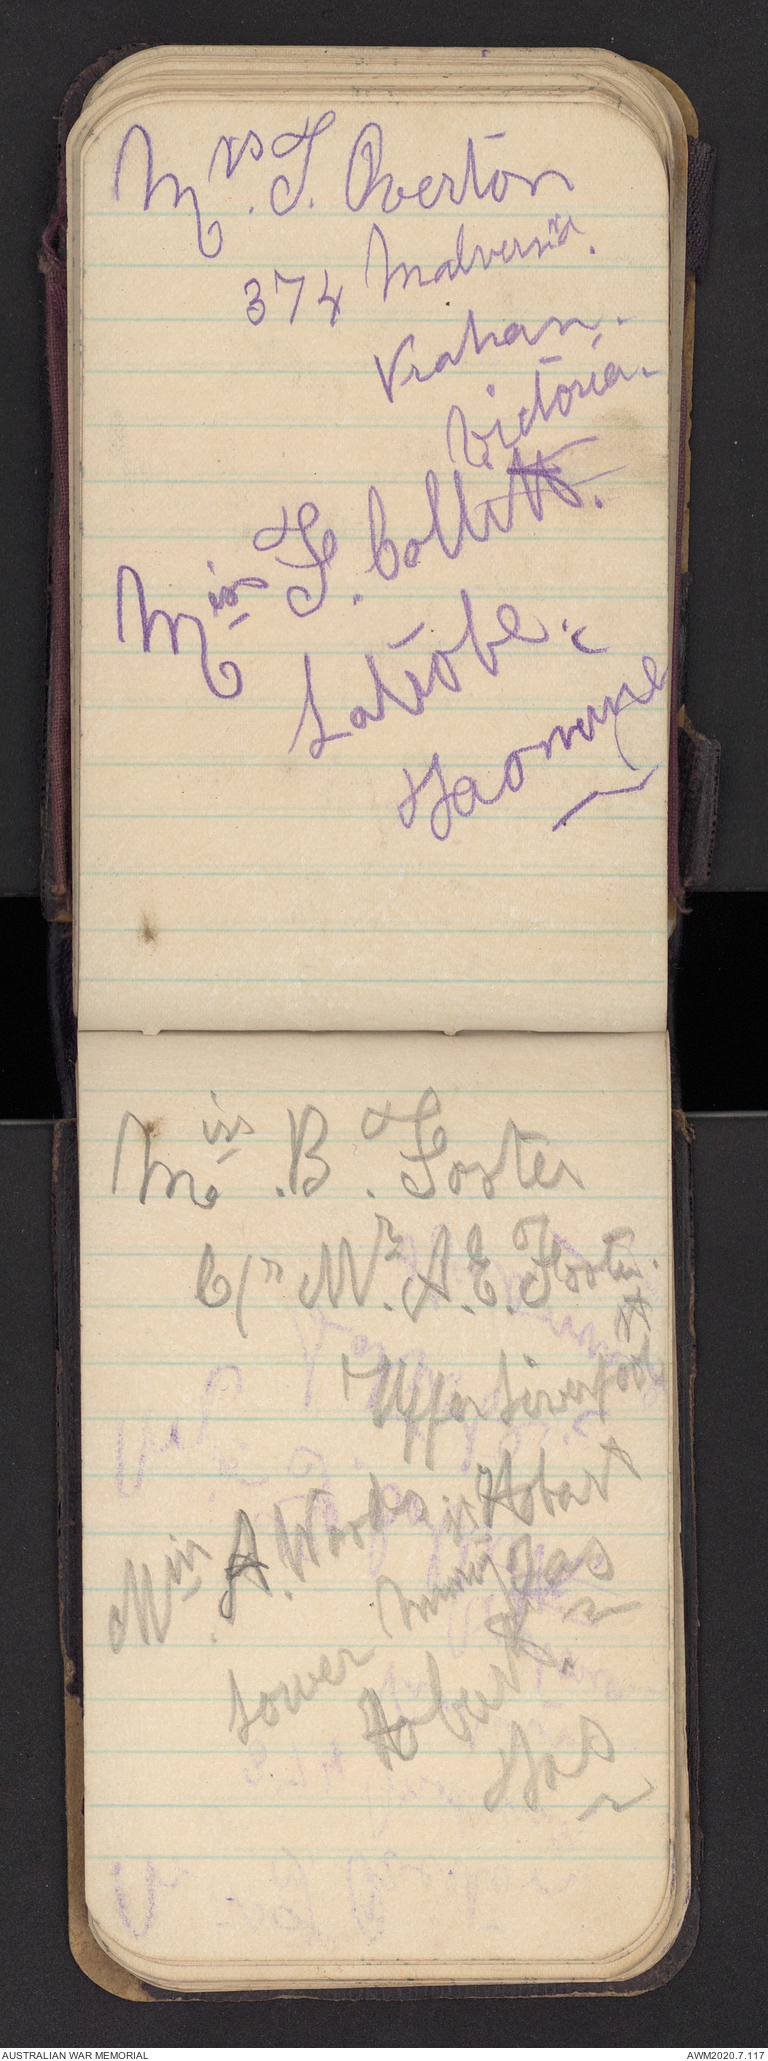 Mrs. T. Overton
374 Malvern rd.
Prahan.
Victoria.
Miss F. Collitt.
Latrobe.
Miss. B. Foster
C/r Mr. A. E. Foster.
Upper Liverpool St
Hobart
Tas
Miss A. Wards
Lower
Hobart.
Tas
AUSTRALIAN WAR MEMORIAL
AWM2020.7.117